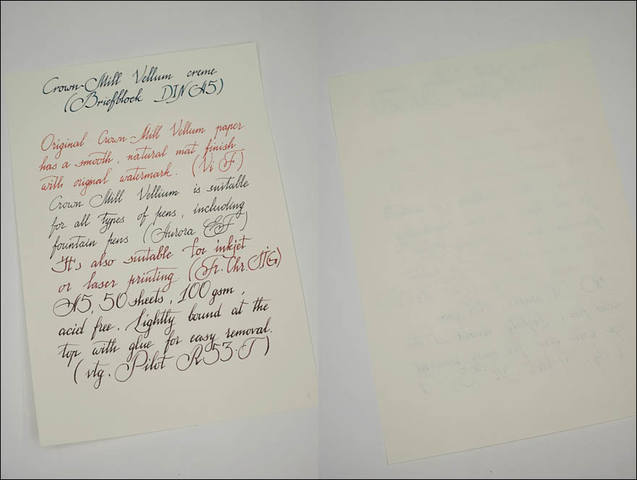 Crown-Mill Vellum creme
(Briefblock DIN A5)
Original Crown-Mill Vellum paper
has a smooth, natural mat finish
with orignal watermark. (Vi F)
Crown Mill Vellium is suitable
for all types of pens, including
fountain pens (Aurora EF)
It's also suitable for inkjet
or laser printing (Fr. Chr. SIG)
A5, 50 sheets, 100 gsm,
acid free. Lightly bound at the
top with glue for easy removal.
(vtg. Pilot R53·T)